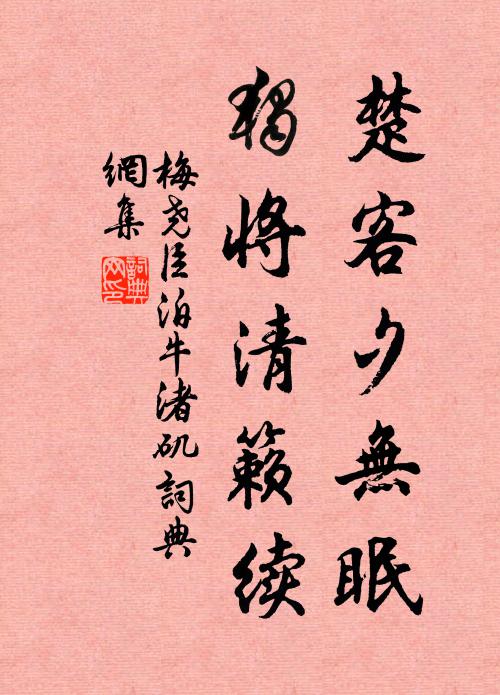 楚客夕無眠
獨將清籟续
梅尧臣泊牛渚矶詞典
網集
詞典網印